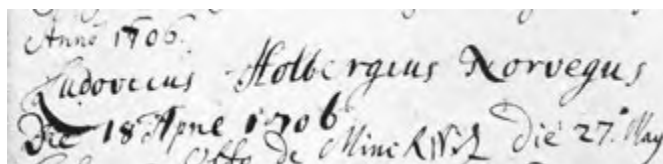 Anno 1706.
Ludovicus Holbergius Norvegus
Die 18 Apríl 1706
Otto de Minckwitz Die 27. May